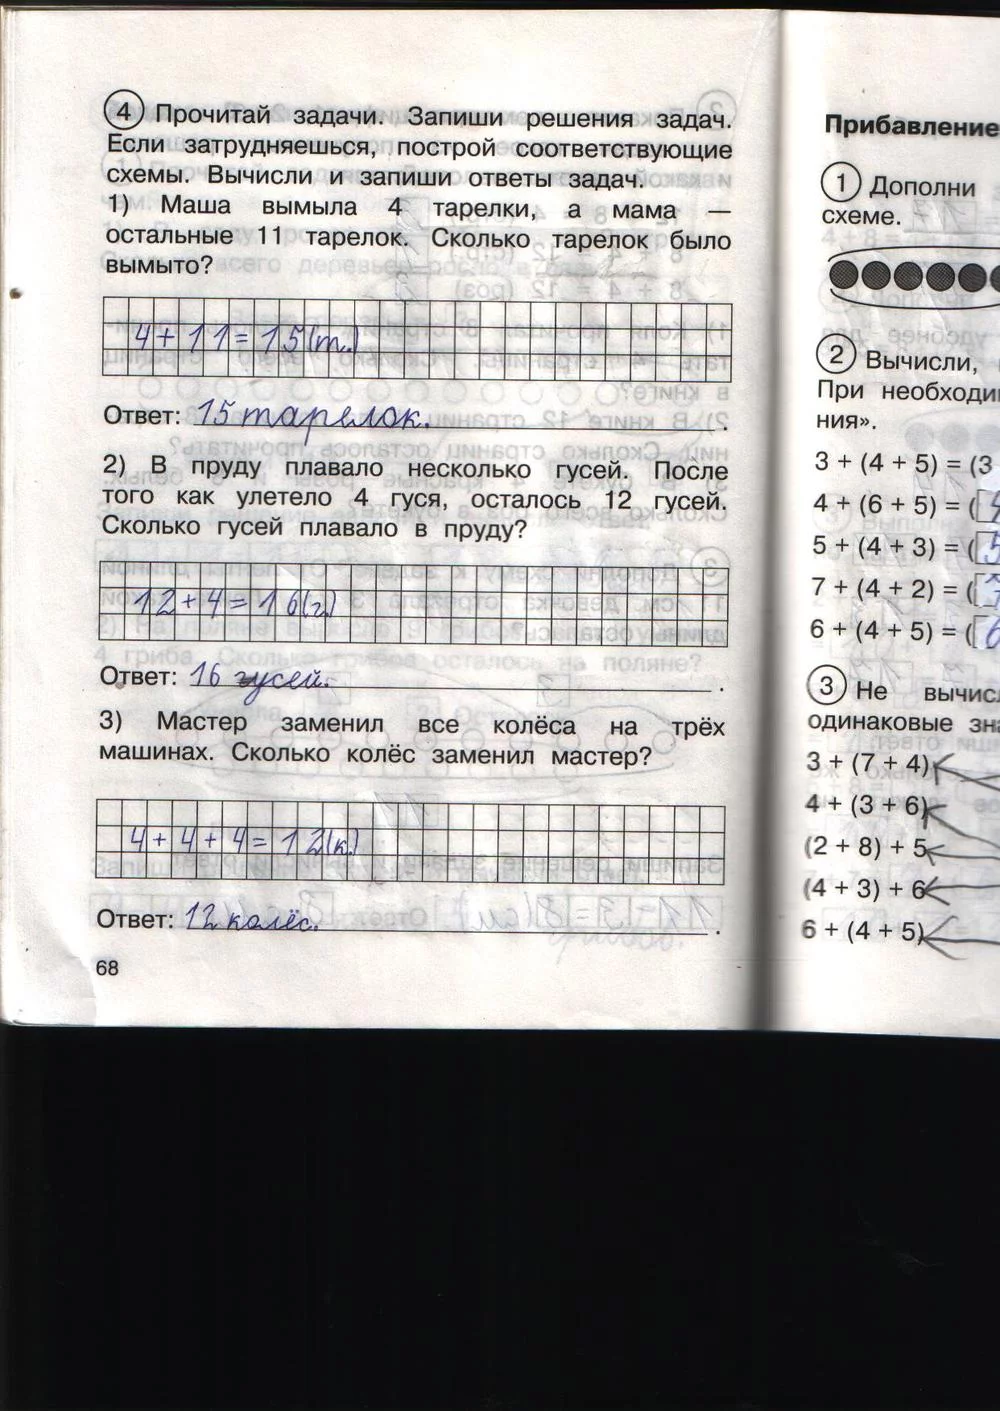 4 Прочитай задачи. Запиши решения задач.
Если затрудняешься, построй соответствующие
схемы. Вычисли и запиши ответы задач.
1) Маша вымыла 4 тарелки, а мама —
остальные 11 тарелок. Сколько тарелок было
вымыто?
4 + 11 = 15 (т.)
Ответ: 15 тарелок.
2) В пруду плавало несколько гусей. После
того как улетело 4 гуся, осталось 12 гусей.
Сколько гусей плавало в пруду?
12 + 4 = 16 (г.)
Ответ: 16 гусей.
3) Мастер заменил все колёса на трёх
машинах. Сколько колёс заменил мастер?
4 + 4 + 4 = 12 (к.)
Ответ: 12 колёс.
68
Прибавление
1 Дополни
схеме.
2 Вычисли,
При необходи
ния».
3 + (4 + 5) = (3
4 + (6 + 5) = (
5 + (4 + 3) = (5
7 + (4 + 2) = (
6 + (4 + 5) = (6
3 Не вычисл
одинаковые зна
3 + (7 + 4)
4 + (3 + 6)
(2 + 8) + 5
(4 + 3) + 6
6 + (4 + 5)